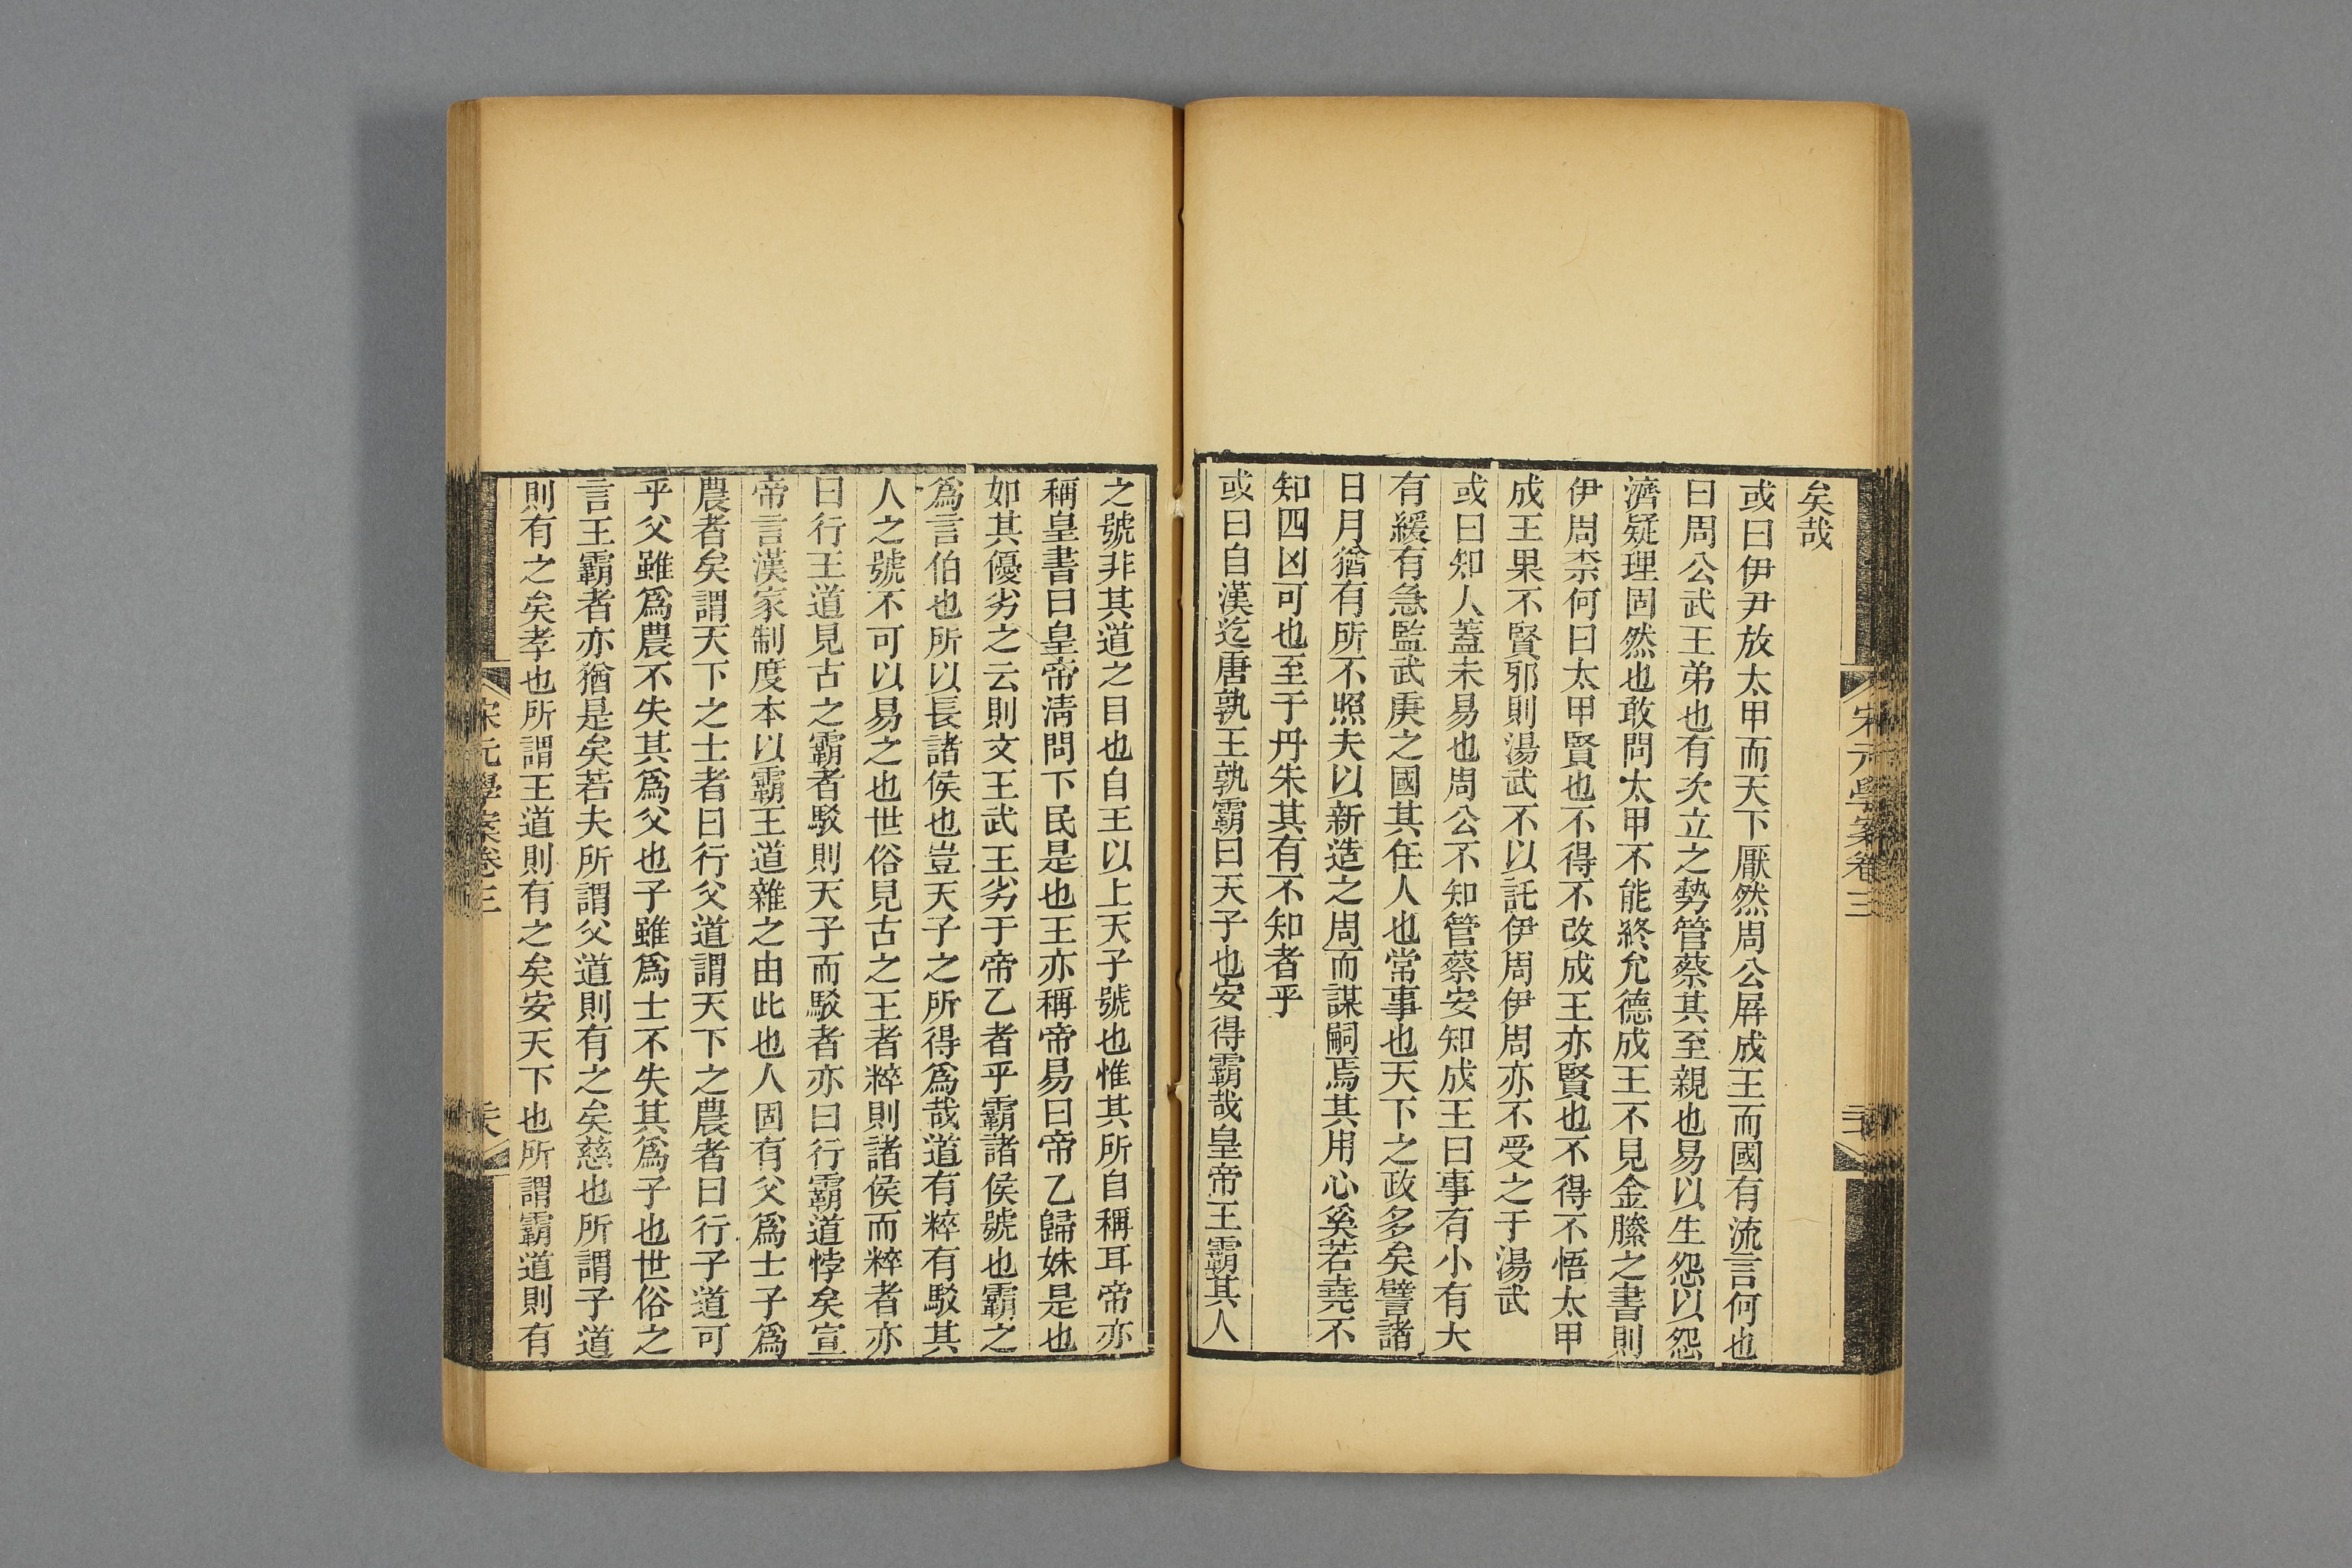 宋元學案卷三
矣哉
或曰伊尹放太甲而天下厭然周公屏成王而國有流言何也
曰周公武王弟也有次立之勢管蔡其至親也易以生怨以怨
濟疑理固然也敢問太甲不能終允德成王不見金縢之書則
伊周柰何曰太甲賢也不得不改成王亦賢也不得不悟太甲
成王果不賢邪則湯武不以託伊周伊周亦不受之于湯武
或曰知人蓋未易也周公不知管蔡安知成王曰事有小有大
有緩有急監武庚之國其任人也常事也天下之政多矣譬諸
日月猶有所不照夫以新造之周而謀嗣焉其用心奚若堯不
知四凶可也至于丹朱其有不知者乎
或曰自漢迄唐孰王孰霸曰天子也安得霸哉皇帝王霸其人
之號非其道之目也自王以上天子號也惟其所自稱耳帝亦
稱皇書曰皇帝清問下民是也王亦稱帝易曰帝乙歸妹是也
如其優劣之云則文王武王劣于帝乙者乎霸諸侯號也霸之
爲言伯也所以長諸侯也豈天子之所得爲哉道有粹有駁其
人之號不可以易之也世俗見古之王者粹則諸侯而粹者亦
曰行王道見古之霸者駁則天子而駁者亦曰行霸道悖矣宣
帝言漢家制度本以霸王道雜之由此也人固有父爲士子爲
農者矣謂天下之士者曰行父道謂天下之農者曰行子道可
乎父雖爲農不失其爲父也子雖爲士不失其爲子也世俗之
言王霸者亦猶是矣若夫所謂父道則有之矣慈也所謂子道
則有之矣孝也所謂王道則有之矣安天下也所謂霸道則有
宋元學案卷三